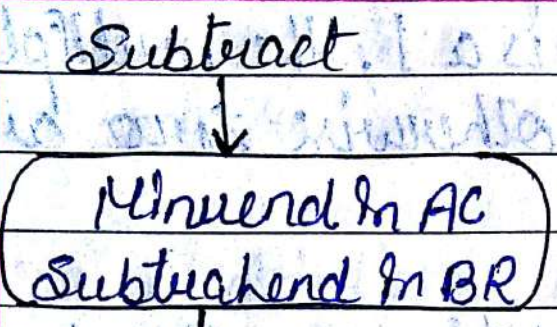 Subtract
Minuend in AC
Subtrahend in BR